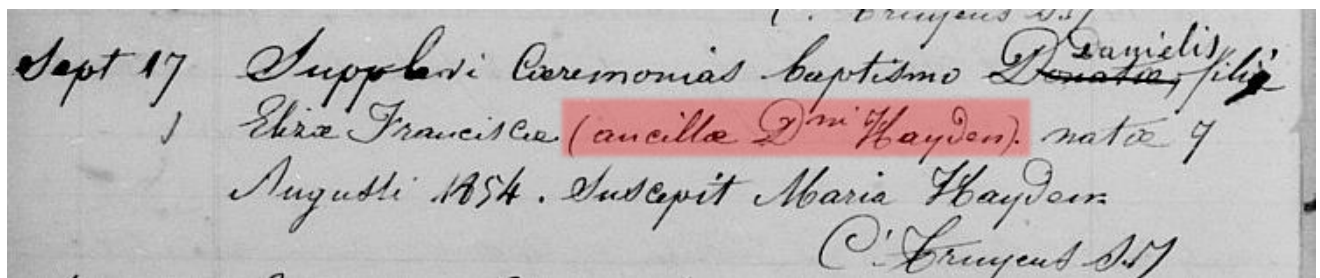 C. Truyens S.J
Sept 17 Supplevi Cæremonias baptismo Donatæ, Danielis filiæ
1 Elizæ Franciscæ (ancillæ Dni Hayden). natæ 7
Augusti 1854. Suscepit Maria Hayden
C. Truyens S.J